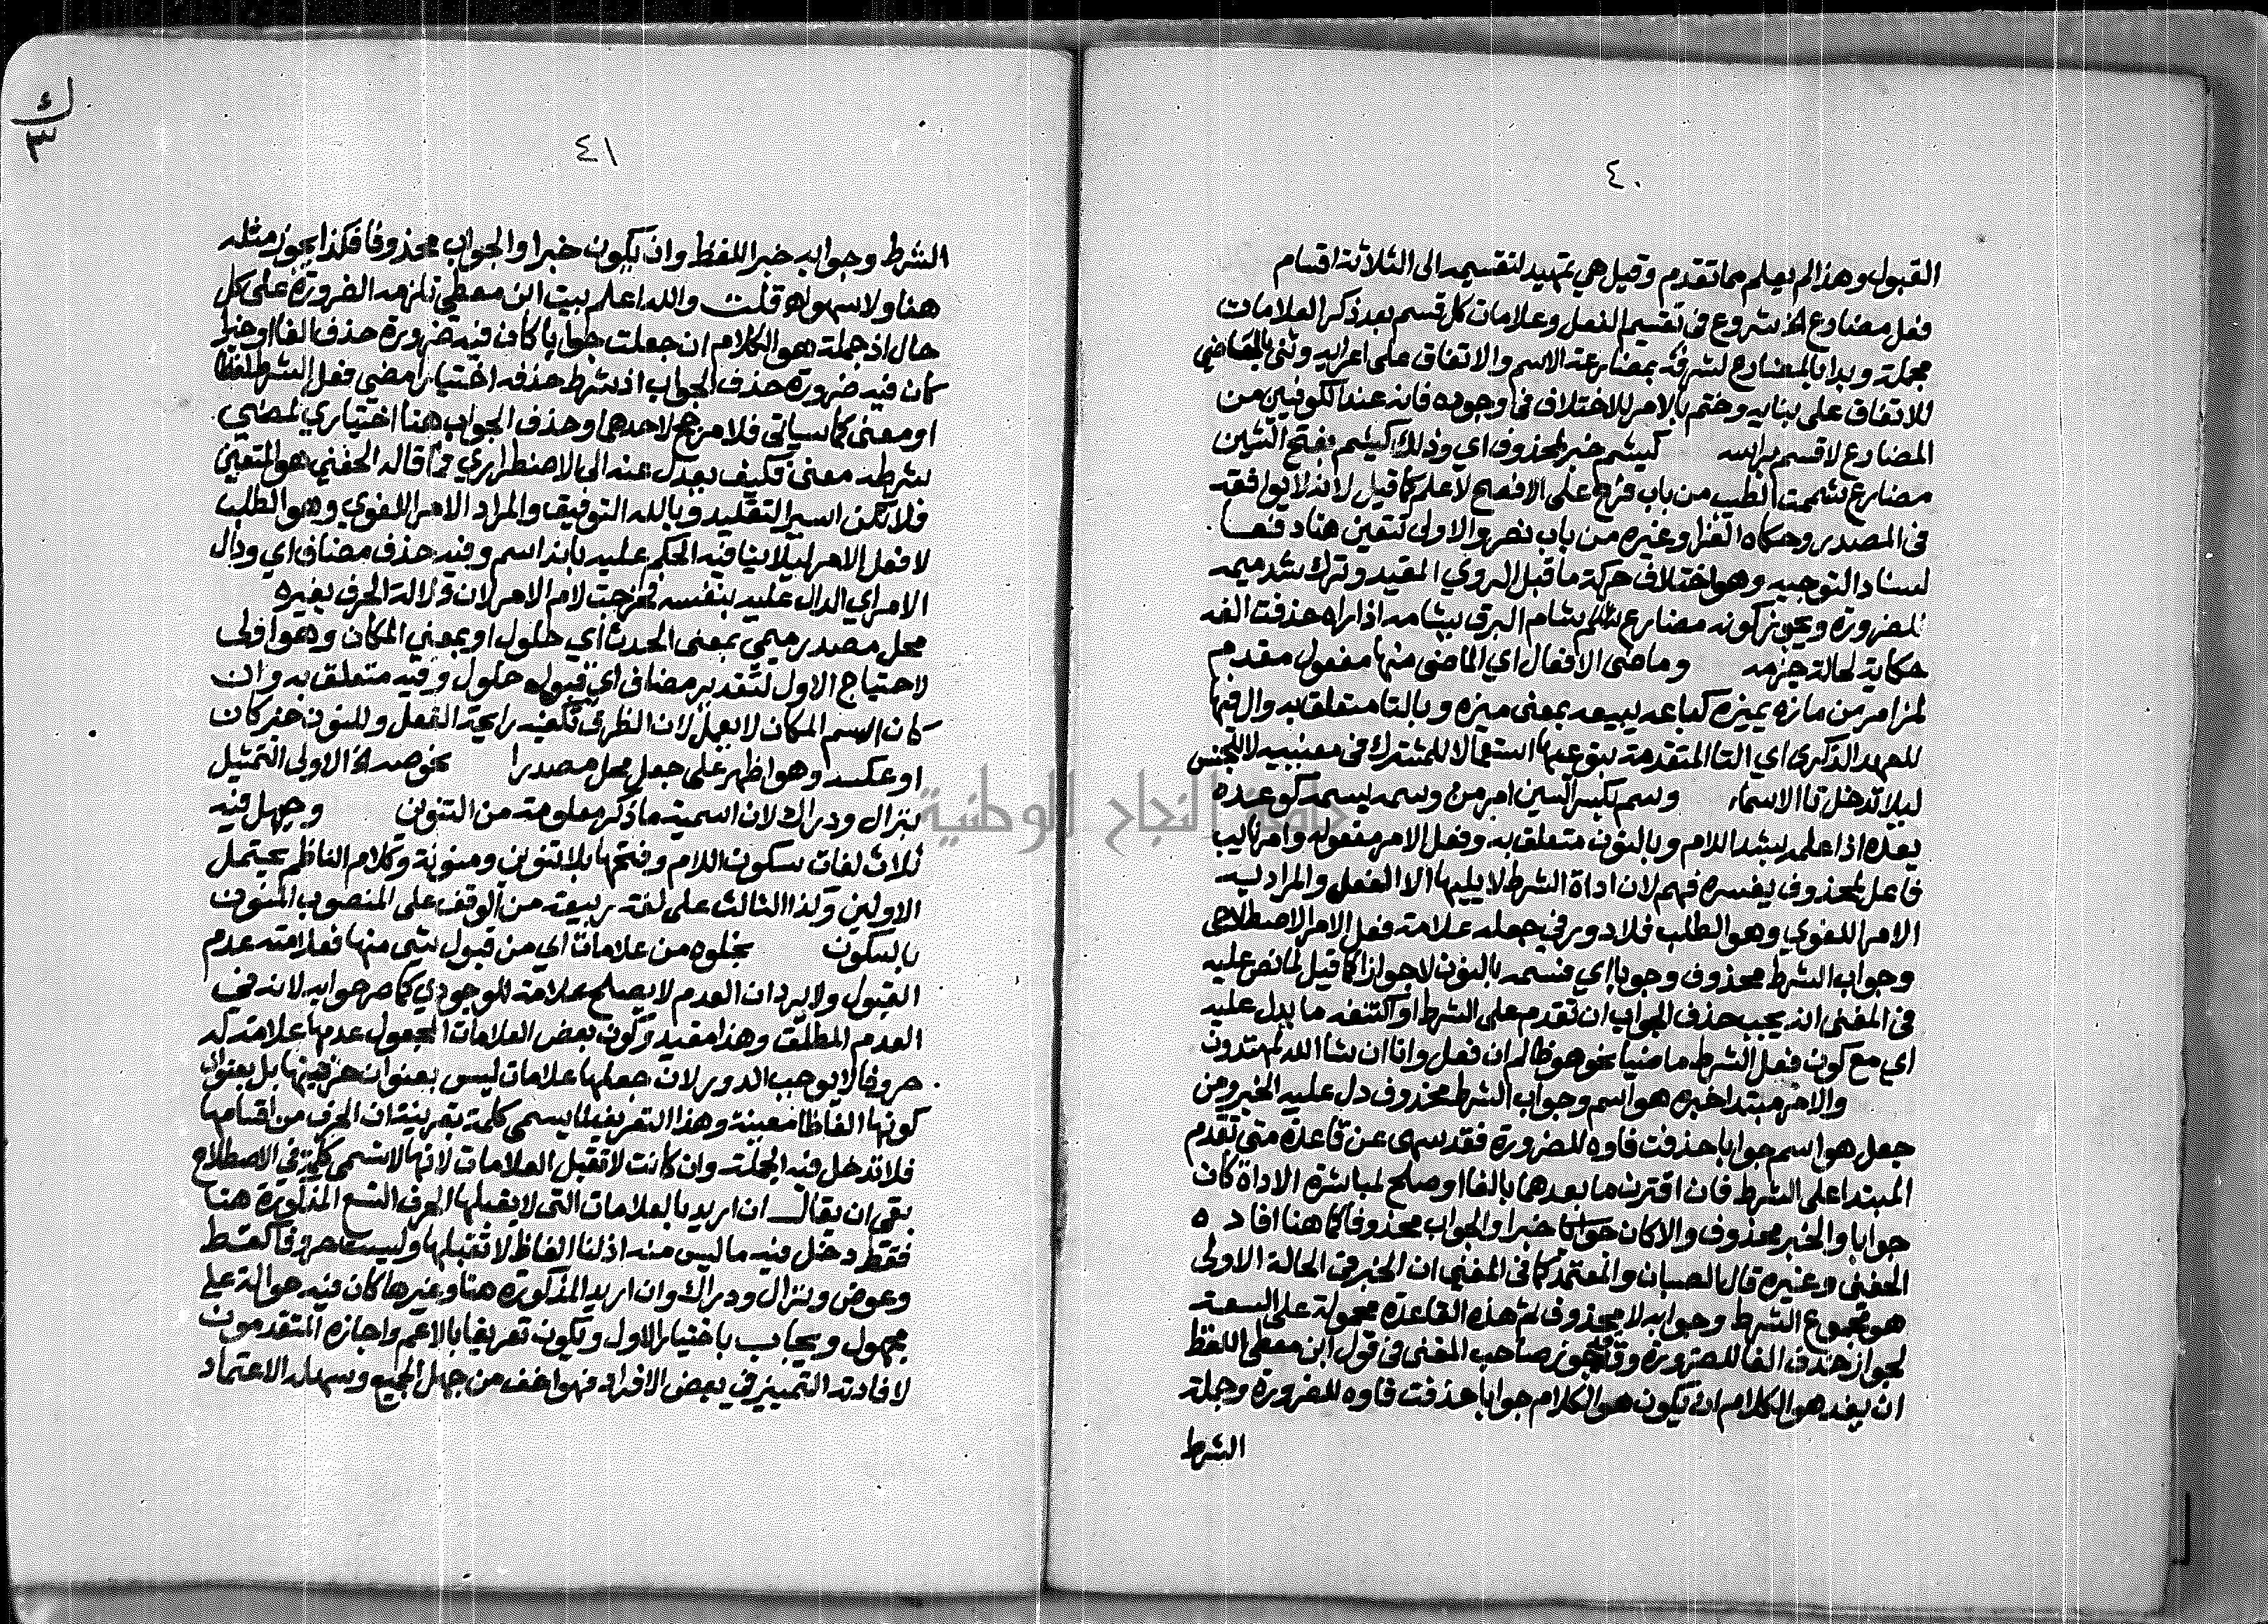 ٤٠
القبول وهذا لم يعلم مما تقدم وقيل هي تمهيد لتقسيمه الى الثلاثة اقسام
فعل مضارع الخ شروع في تقسيم الفعل وعلامات كل قسم بعد ذكر العلامات
مجملة وبدا بالمضارع لشرفه بمضارعة الاسم والاتفاق على اعرابه وثنى بالماضي
للاتفاق على بنايه وختم بالامر للاختلاف في وجوده فانه عند الكوفيين من
المضارع لا قسم براسه كيشم خبر لمحذوف اي وذلك كيشم بفتح الشين
مضارع شممت الطيب من باب فرح على الافصح لا علم كما قيل لانه لا يوافقه
في المصدر وحكاه الفرا وغيره من باب نصر والاولى تتعين هنا دفعا
لسناد التوجيه وهو اختلاف حركة ما قبل الروي المقيد وترك شد ميمه
للضرورة ويجوز كونه مضارع شام البرق يشامه اذا راه حذفت الفه
حكاية لحالة جزمه وماضي الافعال اي الماضي منها مفعول مقدم
لمز امر من مازه يميزه كباعه يبيعه بمعنى ميزه وبالتا متعلق به وال فيها
للعهد الذكري اي التا المتقدمة بنوعيها استعمالا للمشترك في معنييه لا للجنس
ليلا تدخل تا الاسماء وسم بكسر السين امر من وسمه يسمه كوعده
يعده اذا علمه بشد اللام وبالنون متعلق به وفعل الامر مفعوله وامر نايب
فاعل لمحذوف يفسره فهم لان اداة الشرط لا يليها الا الفعل والمراد به
الامر اللغوي وهو الطلب فلا دور في جعله علامة فعل الامر الاصطلاحي
وجواب الشرط محذوف وجوبا اي فسمه بالنون لا جوازا كما قيل لما نص عليه
في المغني انه يجب حذف الجواب ان تقدم على الشرط او اكتنفه ما يدل عليه
اي مع كون فعل الشرط ماضيا نحو هو ظالم ان فعل وانا ان شا الله لمهتدون
والامر مبتدا خبره هو اسم وجواب الشرط محذوف دل عليه الخبر ومن
جعل هو اسم جوابا حذفت فاوه للضرورة فقد سهى عن قاعدة متى تقدم
المبتدا على الشرط فان اقترن ما بعدهما بالفا او صلح لمباشرة الاداة كان
جوابا والخبر محذوف والا كان خبرا والجواب محذوفا كما هنا افاده
الحفني وغيره قال الصبان والمعتمد كما في المغني ان الخبر في الحالة الاولى
هو مجموع الشرط وجوابه لا محذوف ثم هذه القاعدة محمولة على السعة
لجواز حذف الفا للضرورة وقد جوز صاحب المغني في قول ابن معطي اللفظ
ان يفد هو الكلام ان يكون هو الكلام جوابا حذفت فاوه للضرورة وجملة
الشرط
٤١
الشرط وجوابه خبر اللفظ وان يكون خبرا والجواب محذوفا فكذا يجوز مثله
هنا ولا سهو اه قلت والله اعلم بيت ابن معطي تلزمه الضرورة على كل
حال اذ جملة هو الكلام ان جعلت جوابا كان فيه ضرورة حذف الفا او خبرا
كان فيه ضرورة حذف الجواب اذ شرط حذفه اختيارا مضي فعل الشرط لفظا
او معنى كما سياتي فلا مرجح لاحدهما وحذف الجواب هنا اختياري لمضي
شرطه معنى فكيف يعدل عنه الى الاضطراري فما قاله الحفني هو المتعين
فلا تكن اسير التقليد وبالله التوفيق والمراد الامر اللغوي وهو الطلب
لا فعل الامر ليلا ينافيه الحكم عليه بانه اسم وفيه حذف مضاف اي ودال
الامر اي الدال عليه بنفسه فخرجت لام الامر لان دلالة الحرف بغيره
محل مصدر ميمي بمعنى الحدث اي حلول او بمعنى المكان وهو اولى
لاحتياج الاول لتقدير مضاف اي قبول حلول وفيه متعلق به وان
كان اسم المكان لا يعمل لان الظرف تكفيه رايحة الفعل وللنون خبر كان
او عكسه وهو اظهر على جعل محل مصدرا نحو صه الاولى التمثيل
بنزال ودراك لان اسمية ما ذكر معلومة من التنوين وحيهل فيه
ثلاث لغات سكون اللام وفتحها بلا تنوين ومنونة وكلام الناظم يحتمل
الاولين وكذا الثالث على لغة ربيعة من الوقف على المنصوب المنون
بالسكون بخلوه من علامات اي من قبول شي منها فعلامته عدم
القبول ولا يرد ان العدم لا يصلح علامة للوجودي كما مر جوابه لانه في
العدم المطلق وهذا مقيد وكون بعض العلامات المجعول عدمها علامة له
حروفا لا يوجب الدور لان جعلها علامات ليس بعنوان حرفيتها بل بعنوان
كونها الفاظا معينة وهذا التعريف لما يسمى كلمة بقرينة ان الحرف من اقسامها
فلا تدخل فيه الجملة وان كانت لا تقبل العلامات لانها لا تسمى كلمة في الاصطلاح
بقي ان يقال ان اريد بالعلامات التي لا يقبلها الحرف التسع المذكورة هنا
فقط دخل فيه ما ليس منه اذ لنا الفاظ لا تقبلها وليست حروفا كقط
وعوض ونزال ودراك وان اريد المذكورة هنا وغيرها كان فيه حوالة على
مجهول ويجاب باختيار الاول ويكون تعريفا بالاعم واجازه المتقدمون
لافادته التمييز في بعض الافراد فهو اخف من جهل الجميع وسهله الاعتماد
ك
٣
جامعة النجاح الوطنية